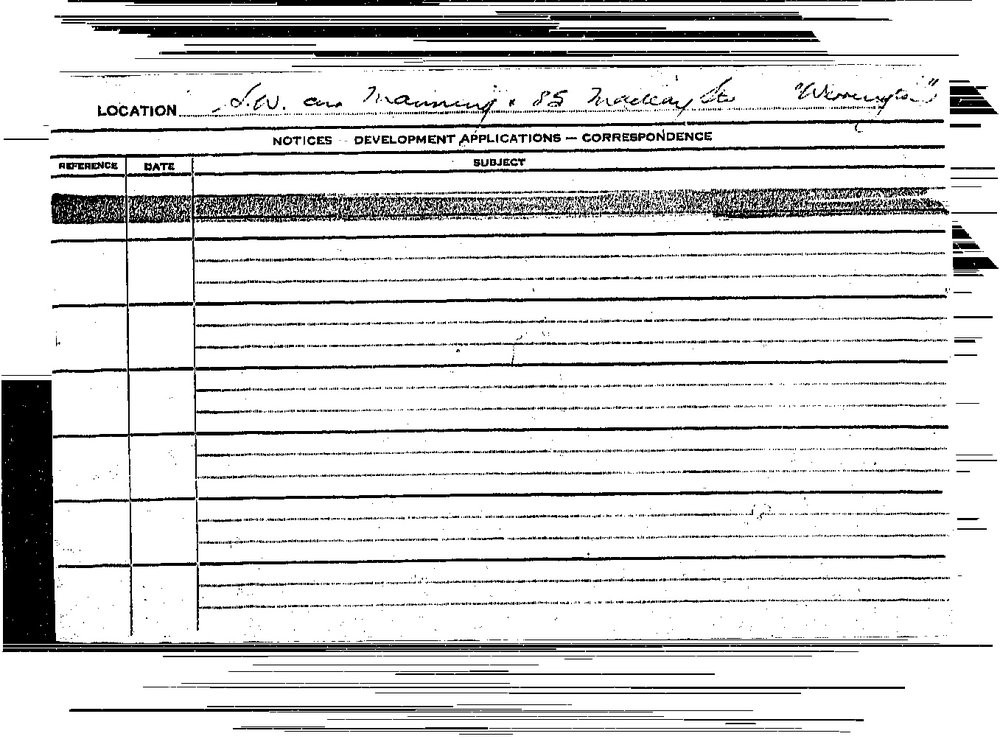 LOCATION S.W. cnr Manning & 85 Macleay Sts "Werrington"
NOTICES - DEVELOPMENT APPLICATIONS — CORRESPONDENCE
REFERENCE DATE SUBJECT